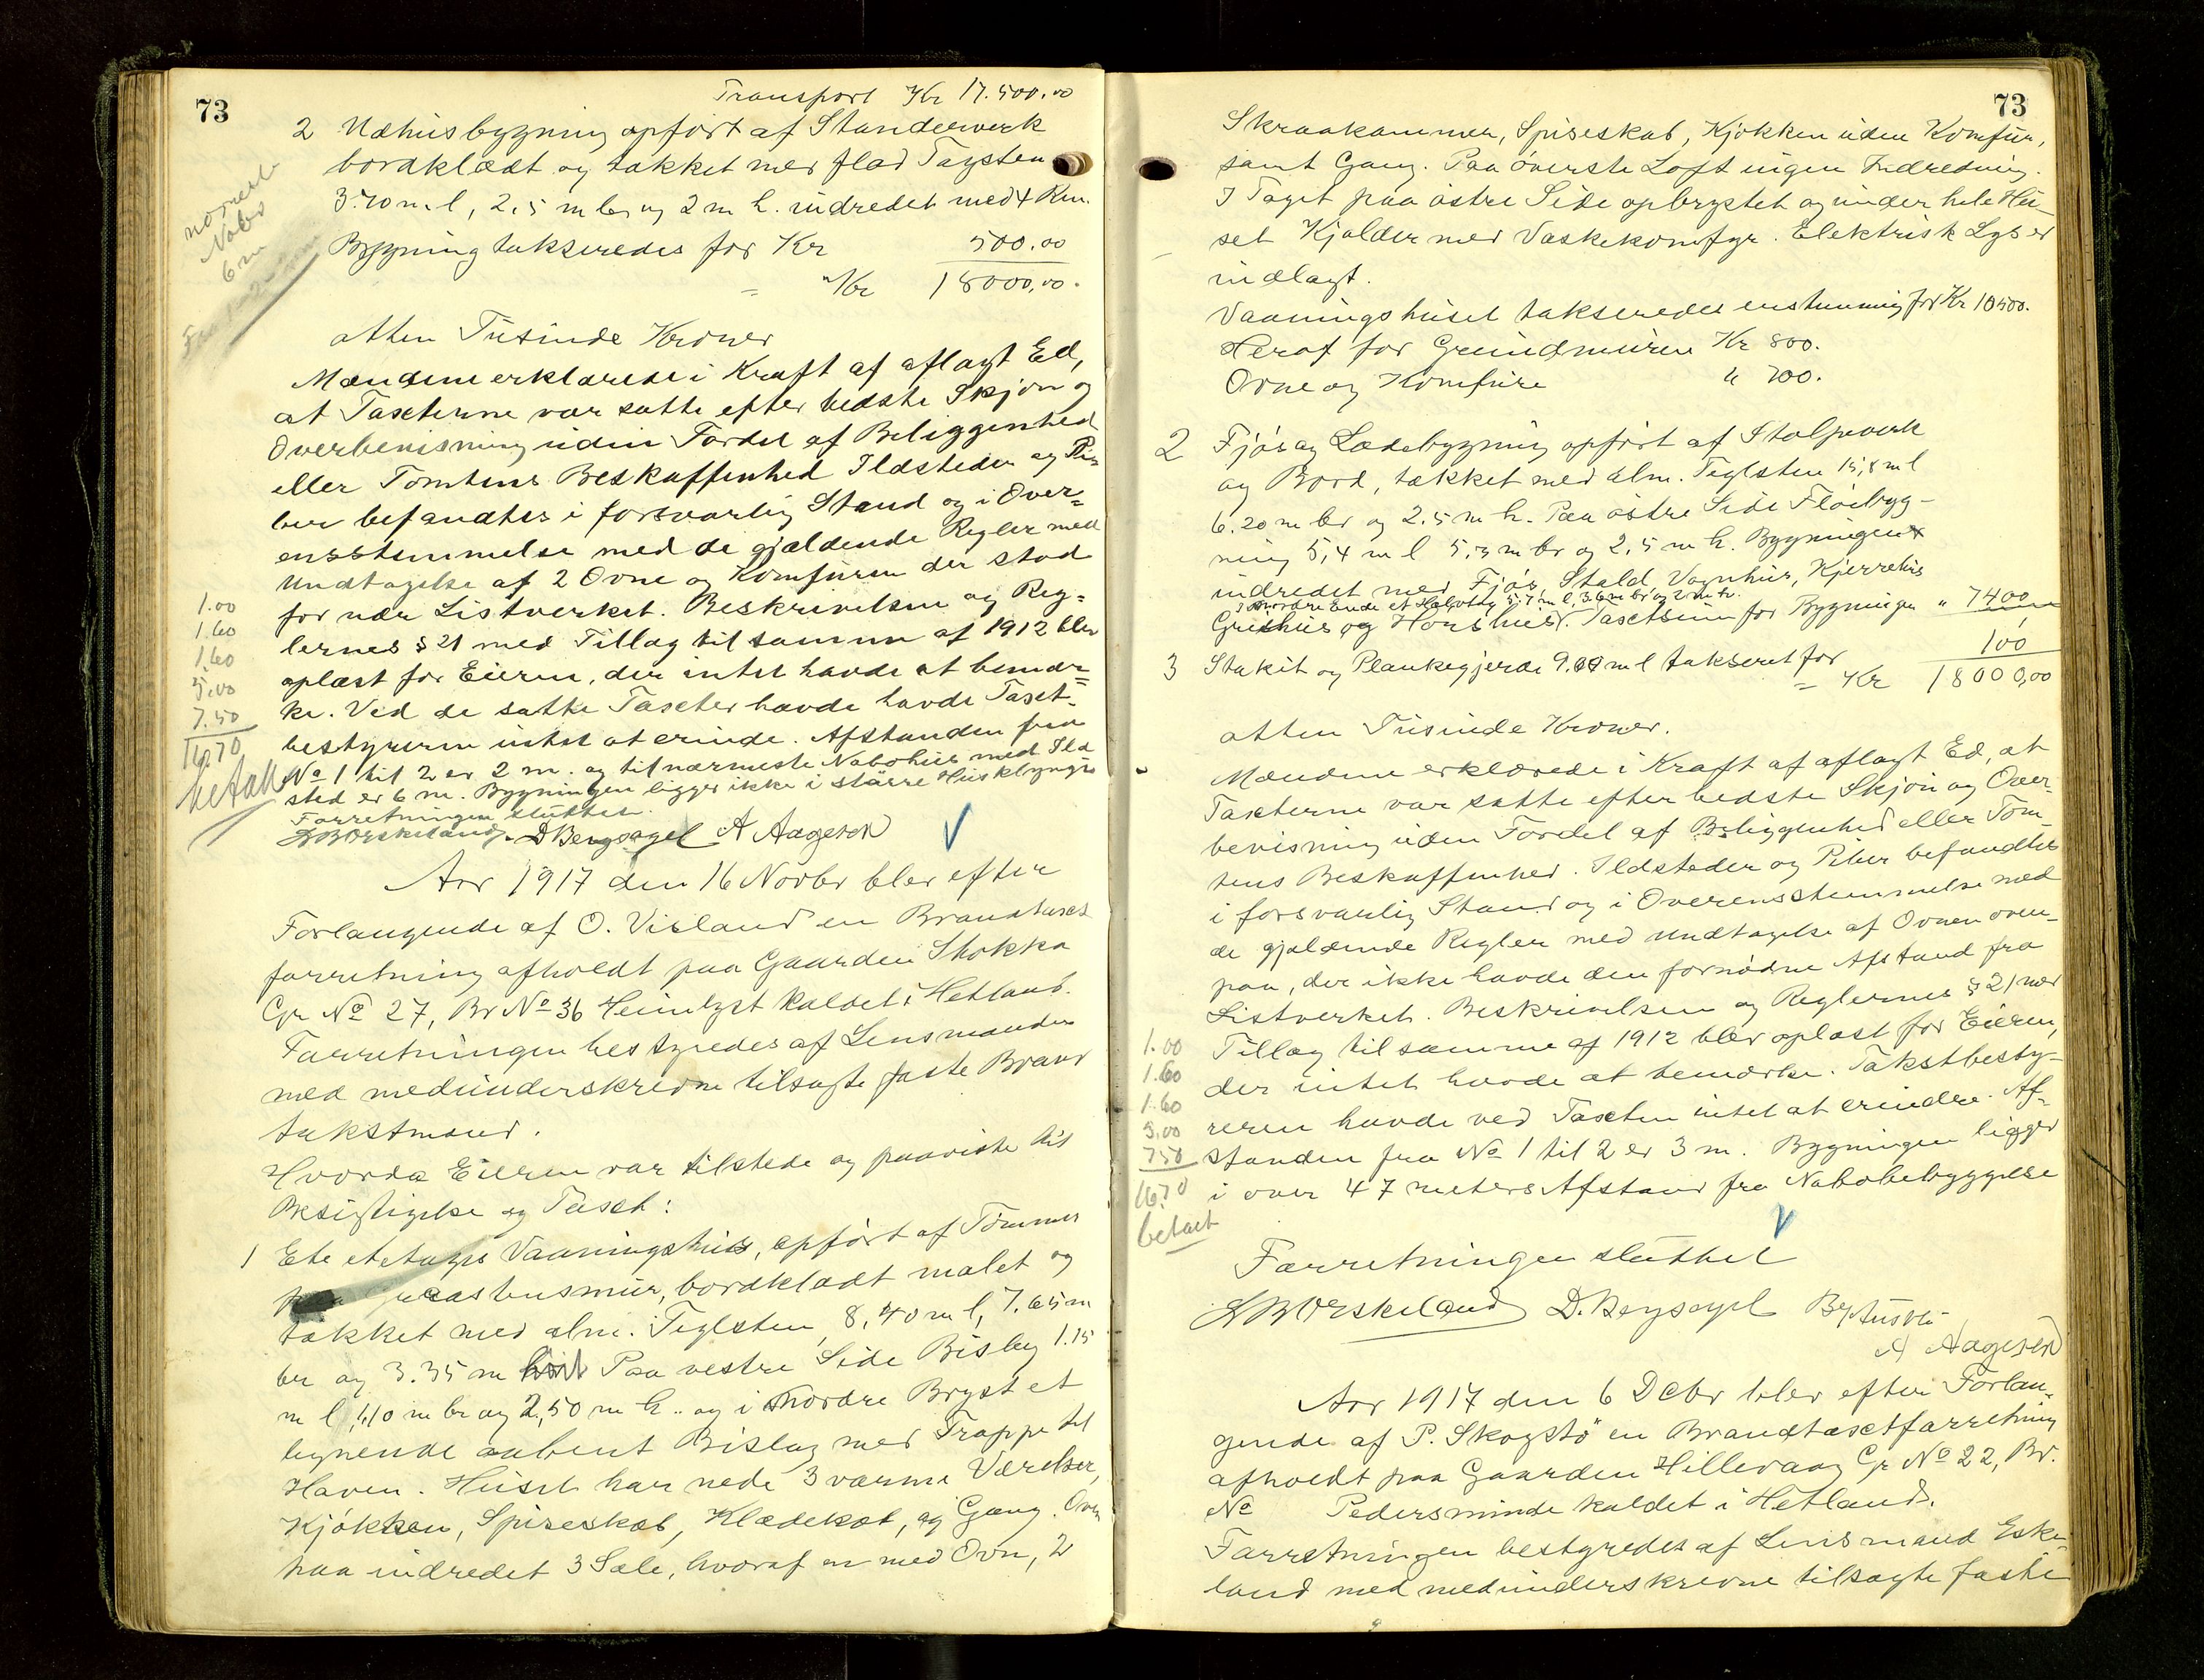 73
Transport Kr 17.500.00
2 Udhusbygning opført af Standerverk
bordklædt og tækket med flad Tagsten
3.70 m l, 2,5 m br og 2 m h. indredet med 4 Rum.
Bygning takseredes for Kr 500.00
= Kr 18000,00.
nærmeste
Nabo
6 m
atten Tusinde Kroner
Mændene erklærede i Kraft af aflagt Ed,
at Taxterne var satte efter bedste Skjøn og
Overbevisning uden Fordel af Beliggenhed
eller Tomtens Beskaffenhed Ildsteder og Pi-
ber befandtes i forsvarlig Stand og i Over-
ensstemmelse med de gjældende Regler med
Undtagelse af 2 Ovne og Komfuren der stod
for nær Listverket. Beskrivelsen og Reg-
lernes § 21 med Tillæg til samme af 1912 blev
oplæst for Eieren, der intet havde at bemær-
ke. Ved de satte Taxter havde havde Taxt-
bestyreren intet at erindre. Afstanden fra
No 1 til 2 er 2 m. og til nærmeste Nabohus med Ild
sted er 6 m. Bygningen ligger ikke i større Husklynge
Forretningen sluttet.
1.00
1.60
1.60
5.00
7.50
16.70
betalt
D Bergsagel A Aagesen
Aar 1917 den 16 Novbr blev efter
Forlangende af O. Visland en Brandtaxt
forretning afholdt paa Gaarden Stokka
Gr No 27, Br No 36 Heimlyst kaldet i Hetland.
Forretningen bestyredes af Lensmanden
med medunderskrevne tilsagte faste Brand
takstmænd.
Hvorda Eieren var tilstede og paaviste til
Besigtigelse og Taxt:
1 Ete etetages Vaaningshus, opført af Tømmer
paa graastensmur, bordklædt malet og
tækket med alm. Teglsten, 8,40 m l, 7.65 m
br og 3.35 m Paa vestre Side Bislag 1.15
m l, 1,10 m br og 2,50 m h. og i nordre Bryst et
lignende aabent Bislag med Trappe til
Haven. Huset har nede 3 varme Værelser,
Kjøkken, Spiseskab, Klædekot, og Gang. Oven
paa indredet 3 Sale, hvoraf en med Ovn, 2
73
Skraakammer, Spiseskab, Kjøkken uden Komfur,
samt Gang. Paa øverste Loft ingen Indredning.
I Taget paa østre Side opbrystet og under hele Hu-
set Kjælder med Vaskekomfyr. Elektrisk Lys er
indlagt.
Vaaningshuset takseredes enstemmig for Kr 10500.
Heraf for Grundmuren Kr 800.
Ovne og Komfure " 700.
2 Fjøs og Ladebygning opført af Stolpeverk
og Bord, tækket med alm. Teglsten 15,8 m l
6.20 m br og 2.5 m h. Paa østre Side Fløibyg-
ning 5,4 m l 5,3 m br og 2,5 m h. Bygningen
indredet med Fjøs, Stald, Vognhus, Kjerrehus
I nordre Ende et Halvtag 5.7 m l, 3.6 m br og 2 m h.
Grisehus og Hønsehus. Taxtsum for Bygningen " 7400
3 Stakit og Plankegjerde 9.00 m l takseret for 100
= Kr 18000,00
atten Tusinde Kroner.
Mændene erklærede i Kraft af aflagt Ed, at
Taxterne var satte efter bedste Skjøn og Over-
bevisning uden Fordel af Beliggenhed eller Tom-
tens Beskaffenhed. Ildsteder og Piber befandtes
i forsvarlig Stand og i Overensstemmelse med
de gjældende Regler med Undtagelse af Ovnen oven-
paa, der ikke havde den fornødne Afstand fra
Listverket. Beskrivelsen og Reglernes § 21 med
Tillæg til samme af 1912 blev oplæst for Eieren,
der intet havde at bemærke. Takstbesty-
reren havde ved Taxten intet at erindre. Af-
standen fra No 1 til 2 er 3 m. Bygningen ligger
i over 47 meters Afstand fra Nabobebyggelse
1.00
1.60
1.60
5.00
7.50
16.70
betalt
Forretningen sluttet
D. Bergsagel
A Aagesen
Aar 1917 den 6 Dcbr blev efter Forlan-
gende af P. Skogstø en Brandtaxtforretning
afholdt paa Gaarden Hillevaag Gr No 22, Br.
No Pedersminde kaldet i Hetland.
Forretningen bestyredes af Lensmand Eske-
land med medunderskrevne tilsagte faste